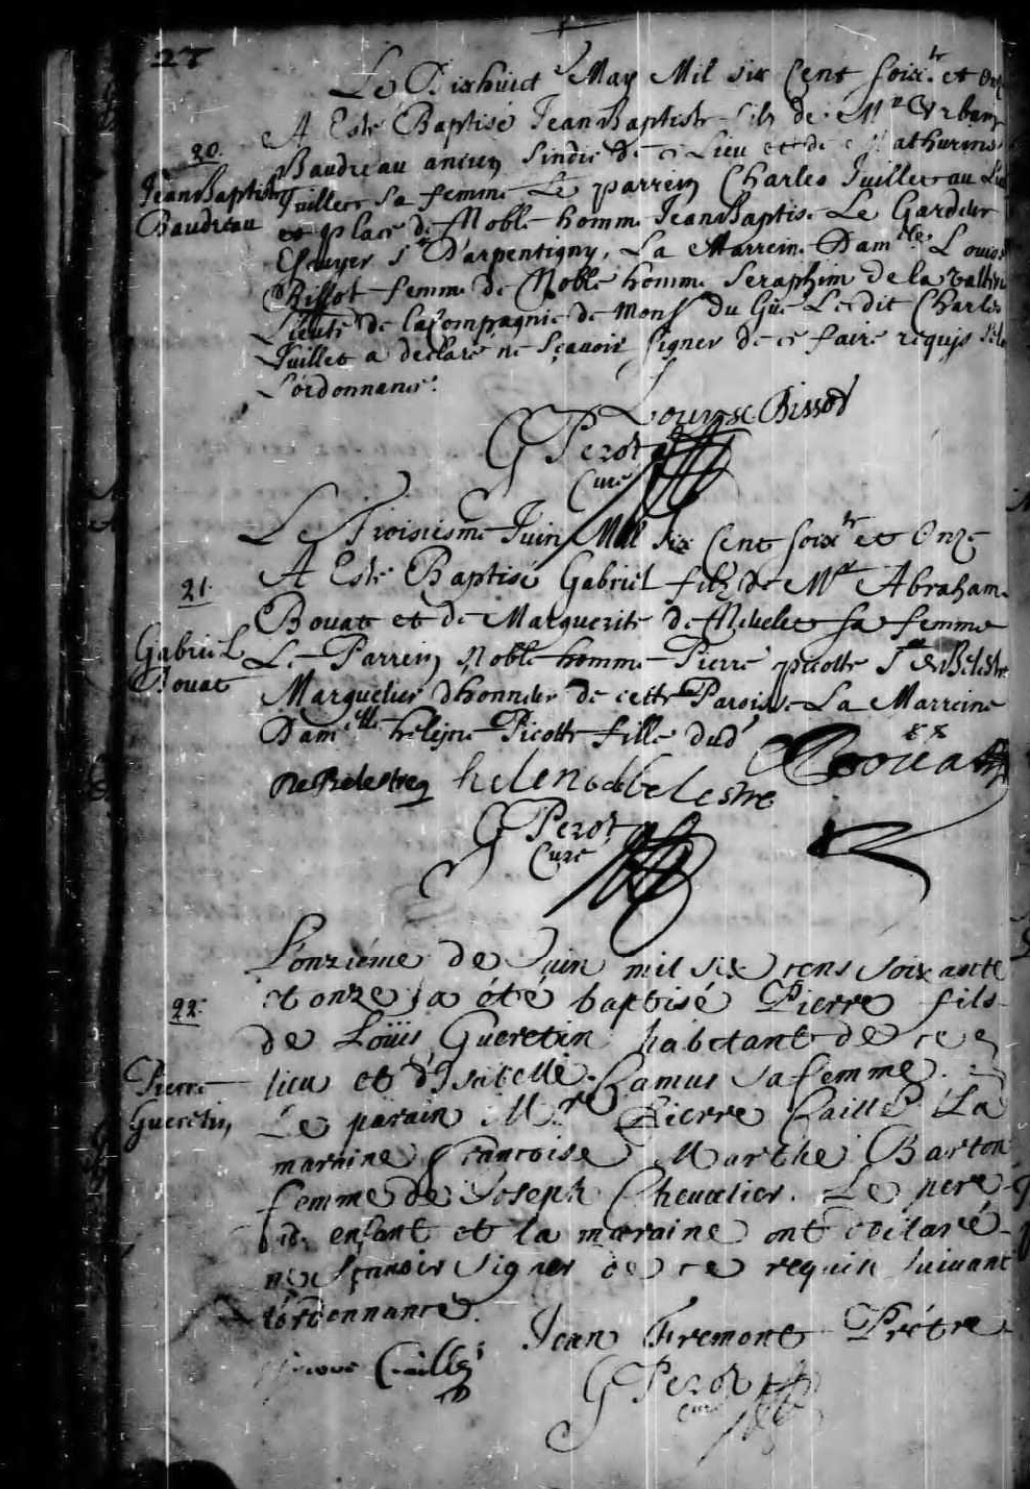 27
Le Dixhuict e May Mil six Cent soix.te et Onze
A Esté Baptisé Jean Baptiste filz de Mr Vrbain
20.
Baudreau ancien sindic de ce Lieu et de Mathurine
Jean Baptiste
Baudreau
Juillet sa femme Le parrein Charles Juillet au Lieu
et place de Noble homme Jean Baptise Le Gardeur
Escuyer Sr D'arpentigny, La Marreine Damlle Louise
Bissot femme de Noble homme Seraphim de la valtrie
Lieute de la Compagnie de Monsr du Gué Ledit Charles
Juillet a declaré ne sçauoir signer de ce faire requis
L'ordonnance.
Louyse Bissot
G Perot
Curé
Le Troisiesme Juin Mil Six Cent soixte et Onze
A Esté Baptisé Gabriel filz de Mr Abraham
21.
Bouat et de Marguerite de Neuelet sa femme
Gabriel
Bouat
Le Parrein Noble homme Pierre picotte Sr de Belestre
Marguelier dhonneur de cette Paroisse La Marreine
Damelle helene Picotte fille dud
De Belestre helene de belestre Bouat
G Perot
Curé
L'onziéme de Juin mil six cens soixante
et onze a été baptisé Pierre fils
22.
de Loüis Gueretin habitant de ce
Pierre
Gueretin
lieu et d'Isabelle Camus sa femme.
Le parain Mr Pierre Caillé La
maraine Francoise Marthe Barton
femme de Joseph Cheualier. Le pere
enfant et la maraine ont declaré
ne sçauoir signer de ce requis suiuant
l'ordonnance.
Jean Fremont Prétre
Caillé
G Perot
curé